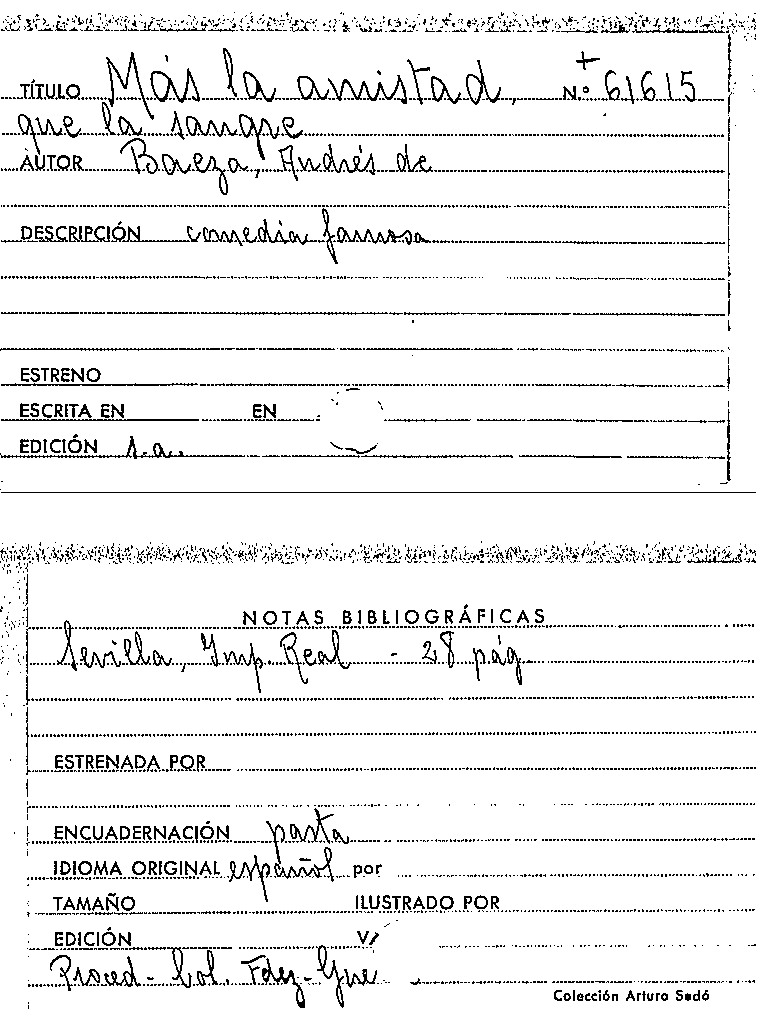 TÍTULO Más la amistad, N.º + 61615
que la sangre
AUTOR Baeza, Andrés de
DESCRIPCIÓN comedia famosa
ESTRENO
ESCRITA EN EN
EDICIÓN s.a.
NOTAS BIBLIOGRÁFICAS
Sevilla, Imp. Real - 28 pág
ESTRENADA POR
ENCUADERNACIÓN pasta
IDIOMA ORIGINAL español por
TAMAÑO ILUSTRADO POR
EDICIÓN V/
Proced- Col. Fdez-Gue
Colección Arturo Sedó